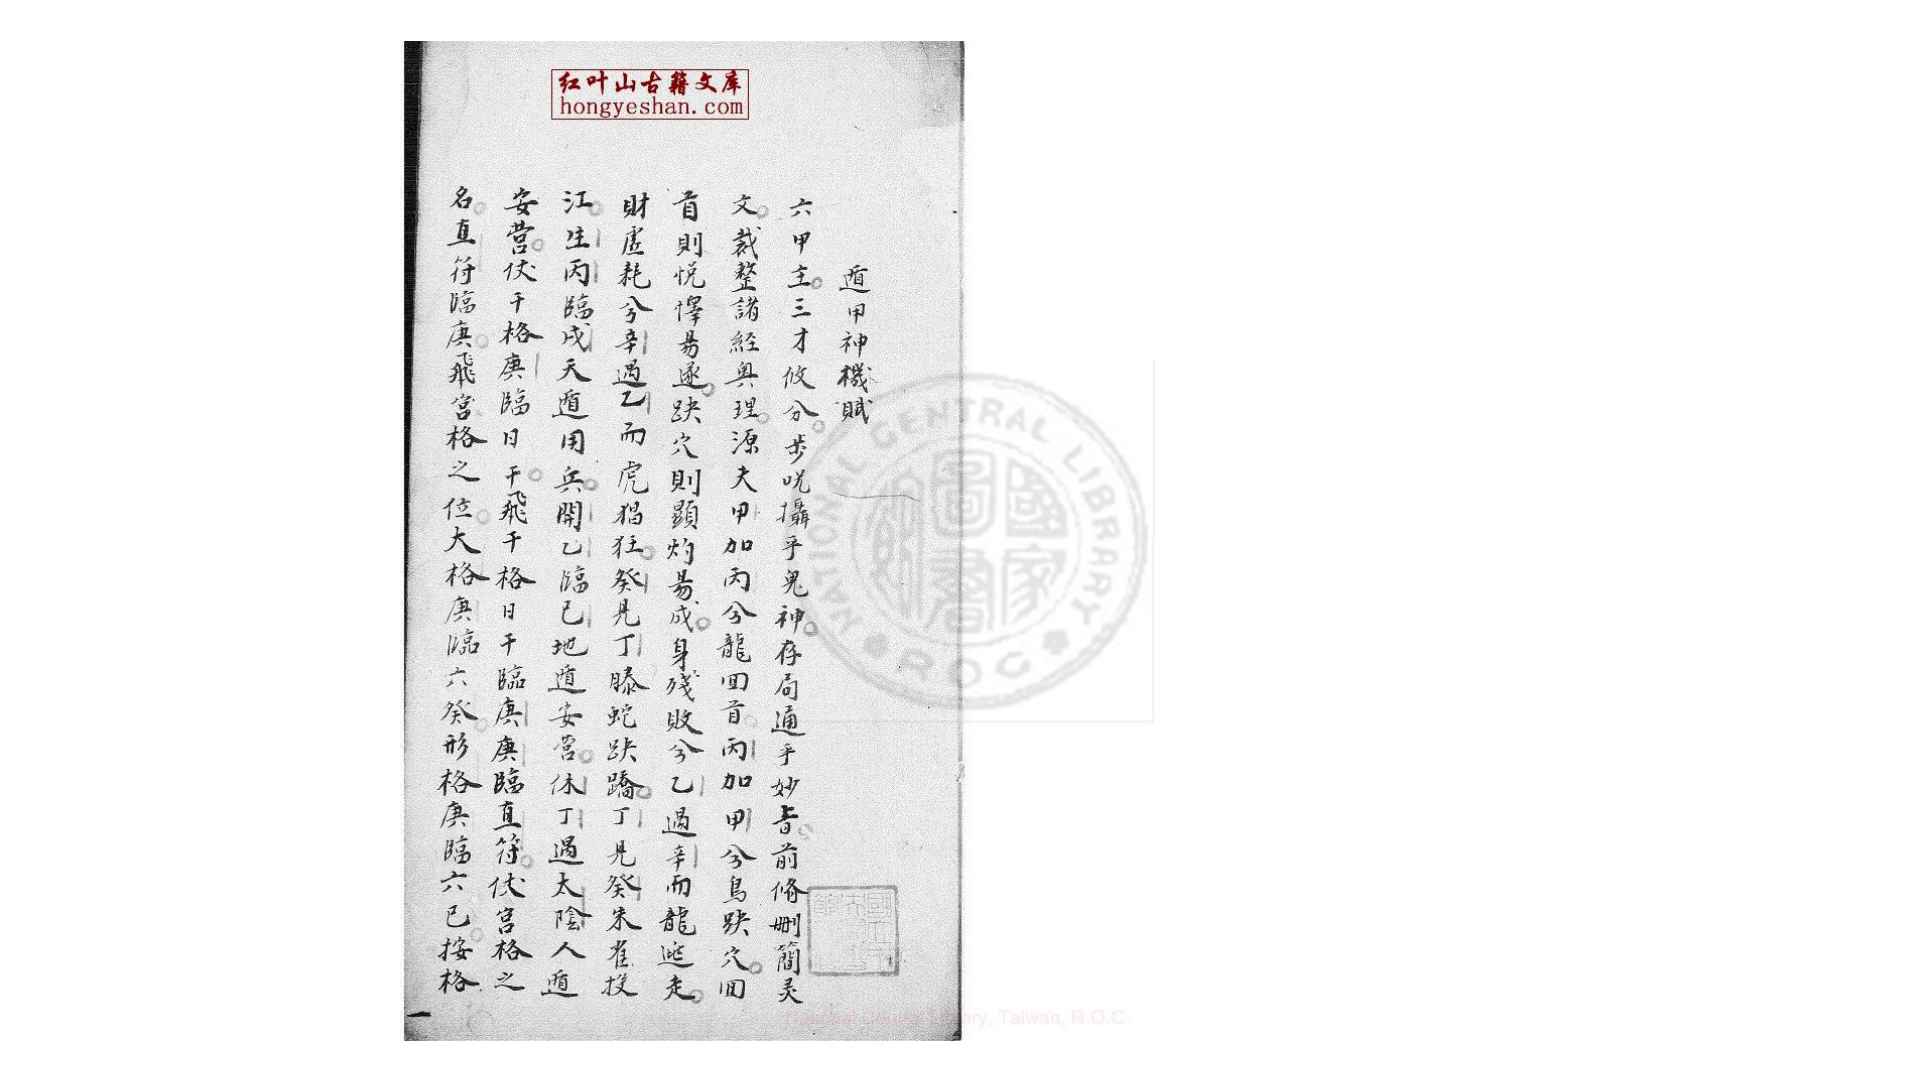 红叶山古籍文库
hongyeshan.com
遁甲神機賦
六甲主三才攸分步呪攝乎鬼神存局通乎妙旨前脩刪簡灵
文裁整諸經奥理源夫甲加丙兮龍回首丙加甲兮鳥跌穴回
首則悦懌易遂跌穴則顯灼易成身殘敗兮乙過辛而龍逃走
財虗耗兮辛過乙而虎猖狂癸見丁螣蛇跌蹻丁見癸朱雀投
江生丙臨戌天遁用兵開乙臨已地遁安营休丁過太陰人遁
安营伏干格庚臨日干飛干格日干臨庚庚臨直符伏宫格之
名直符臨庚飛宫格之位大格庚臨六癸形格庚臨六已按格
一
NATIONAL CENTRAL LIBRARY
ROC
國家圖書館
National Central Library, Taiwan, R.O.C